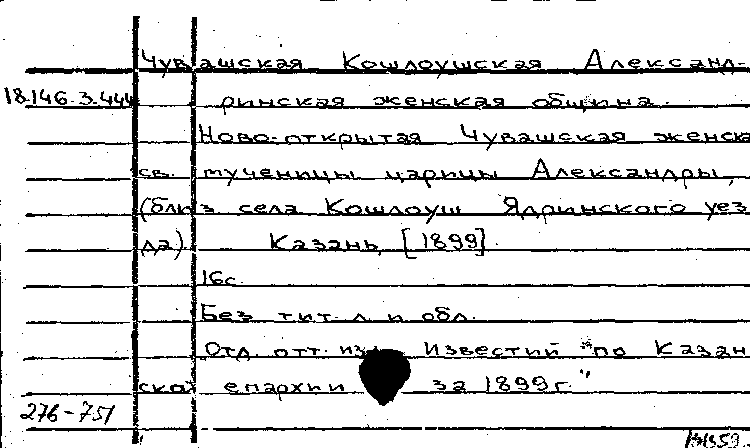 Чувашская Кошлоушская Александ-
18.146.3.444 ринская женская община.
Ново-открытая Чувашская женска
св. мученицы царицы Александры,
(близ села Кошлоуш Ядринского уез
да). Казань, [1899].
16с.
Без тит. л. и обл.
Отд. отт. из "Известий "по Казан
ской епархии за 1899г."
276-751